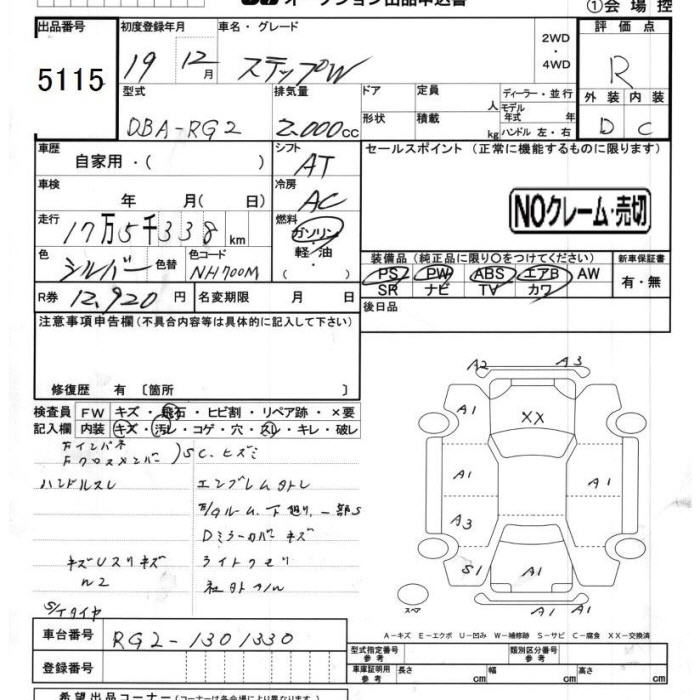 オークション出品申込書
①会場控
出品番号
5115
初度登録年月
19 12月
車名・グレード
ステップW
2WD
・
4WD
評価点
R
外装 内装
D C
型式
DBA-RG2
排気量
2.000cc
ドア
形状
定員 人
積載 kg
ディーラー・並行
モデル
年式 年
ハンドル 左・右
車歴
自家用・( )
シフト
AT
セールスポイント (正常に機能するものに限ります)
車検
年 月( 日)
冷房
AC
NOクレーム・売切
走行
17万5千338km
燃料
ガソリン
軽・油
・( )
色
シルバー
色替
色コード
NH700M
装備品 (純正品に限り○をつけてください)
PS PW ABS エアB AW
SR ナビ TV カワ
新車保証書
有・無
R券
12,920円
名変期限 月 日
後日品
注意事項申告欄(不具合内容等は具体的に記入して下さい)
修復歴 有 〔箇所 〕
検査員
記入欄
FW キズ・飛石・ヒビ割・リペア跡・×要
内装 キズ・汚レ・コゲ・穴・スレ・キレ・破レ
Fインパネ
Fクロスメンバー
)SC.ヒズミ
ハンドルスレ
エンブレムカトレ
F/Aルーム.下廻り.一部S
Dミラーカバーキズ
ライトクモリ
キズUスリキズ
S/Tタイヤ
A2 A3
A1
XX
A1 A1 A1
A3
S1 A1
A1 A1
スペア
A-キズ E-エクボ U-凹み W-補修跡 S-サビ C-腐食 XX-交換済
車台番号
RG2-1301330
登録番号
型式指定番号
参考
類別区分番号
参考
車庫証明用
参考
長さ cm
幅 cm
高さ cm
希望出品コーナー(コーナーは各会場により異なります。)